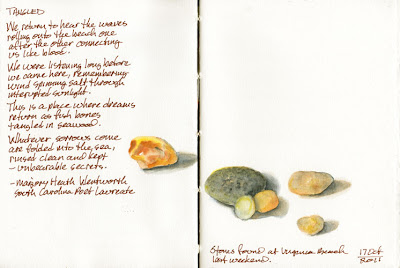 TANGLED
We return to hear the waves
rolling onto the beach one
after the other connecting
us like blood.
We were listening long before
we came here, remembering
wind spinning salt through
interrupted sunlight.
This is a place where dreams
return as fish bones
tangled in seaweed.
Whatever sorrows come
are folded into the sea,
rinsed clean and kept
- unbearable secrets.
- Marjory Heath Wentworth
South Carolina Poet Laureate
Stones found at Virginia Beach
last weekend.
17 Oct
2011